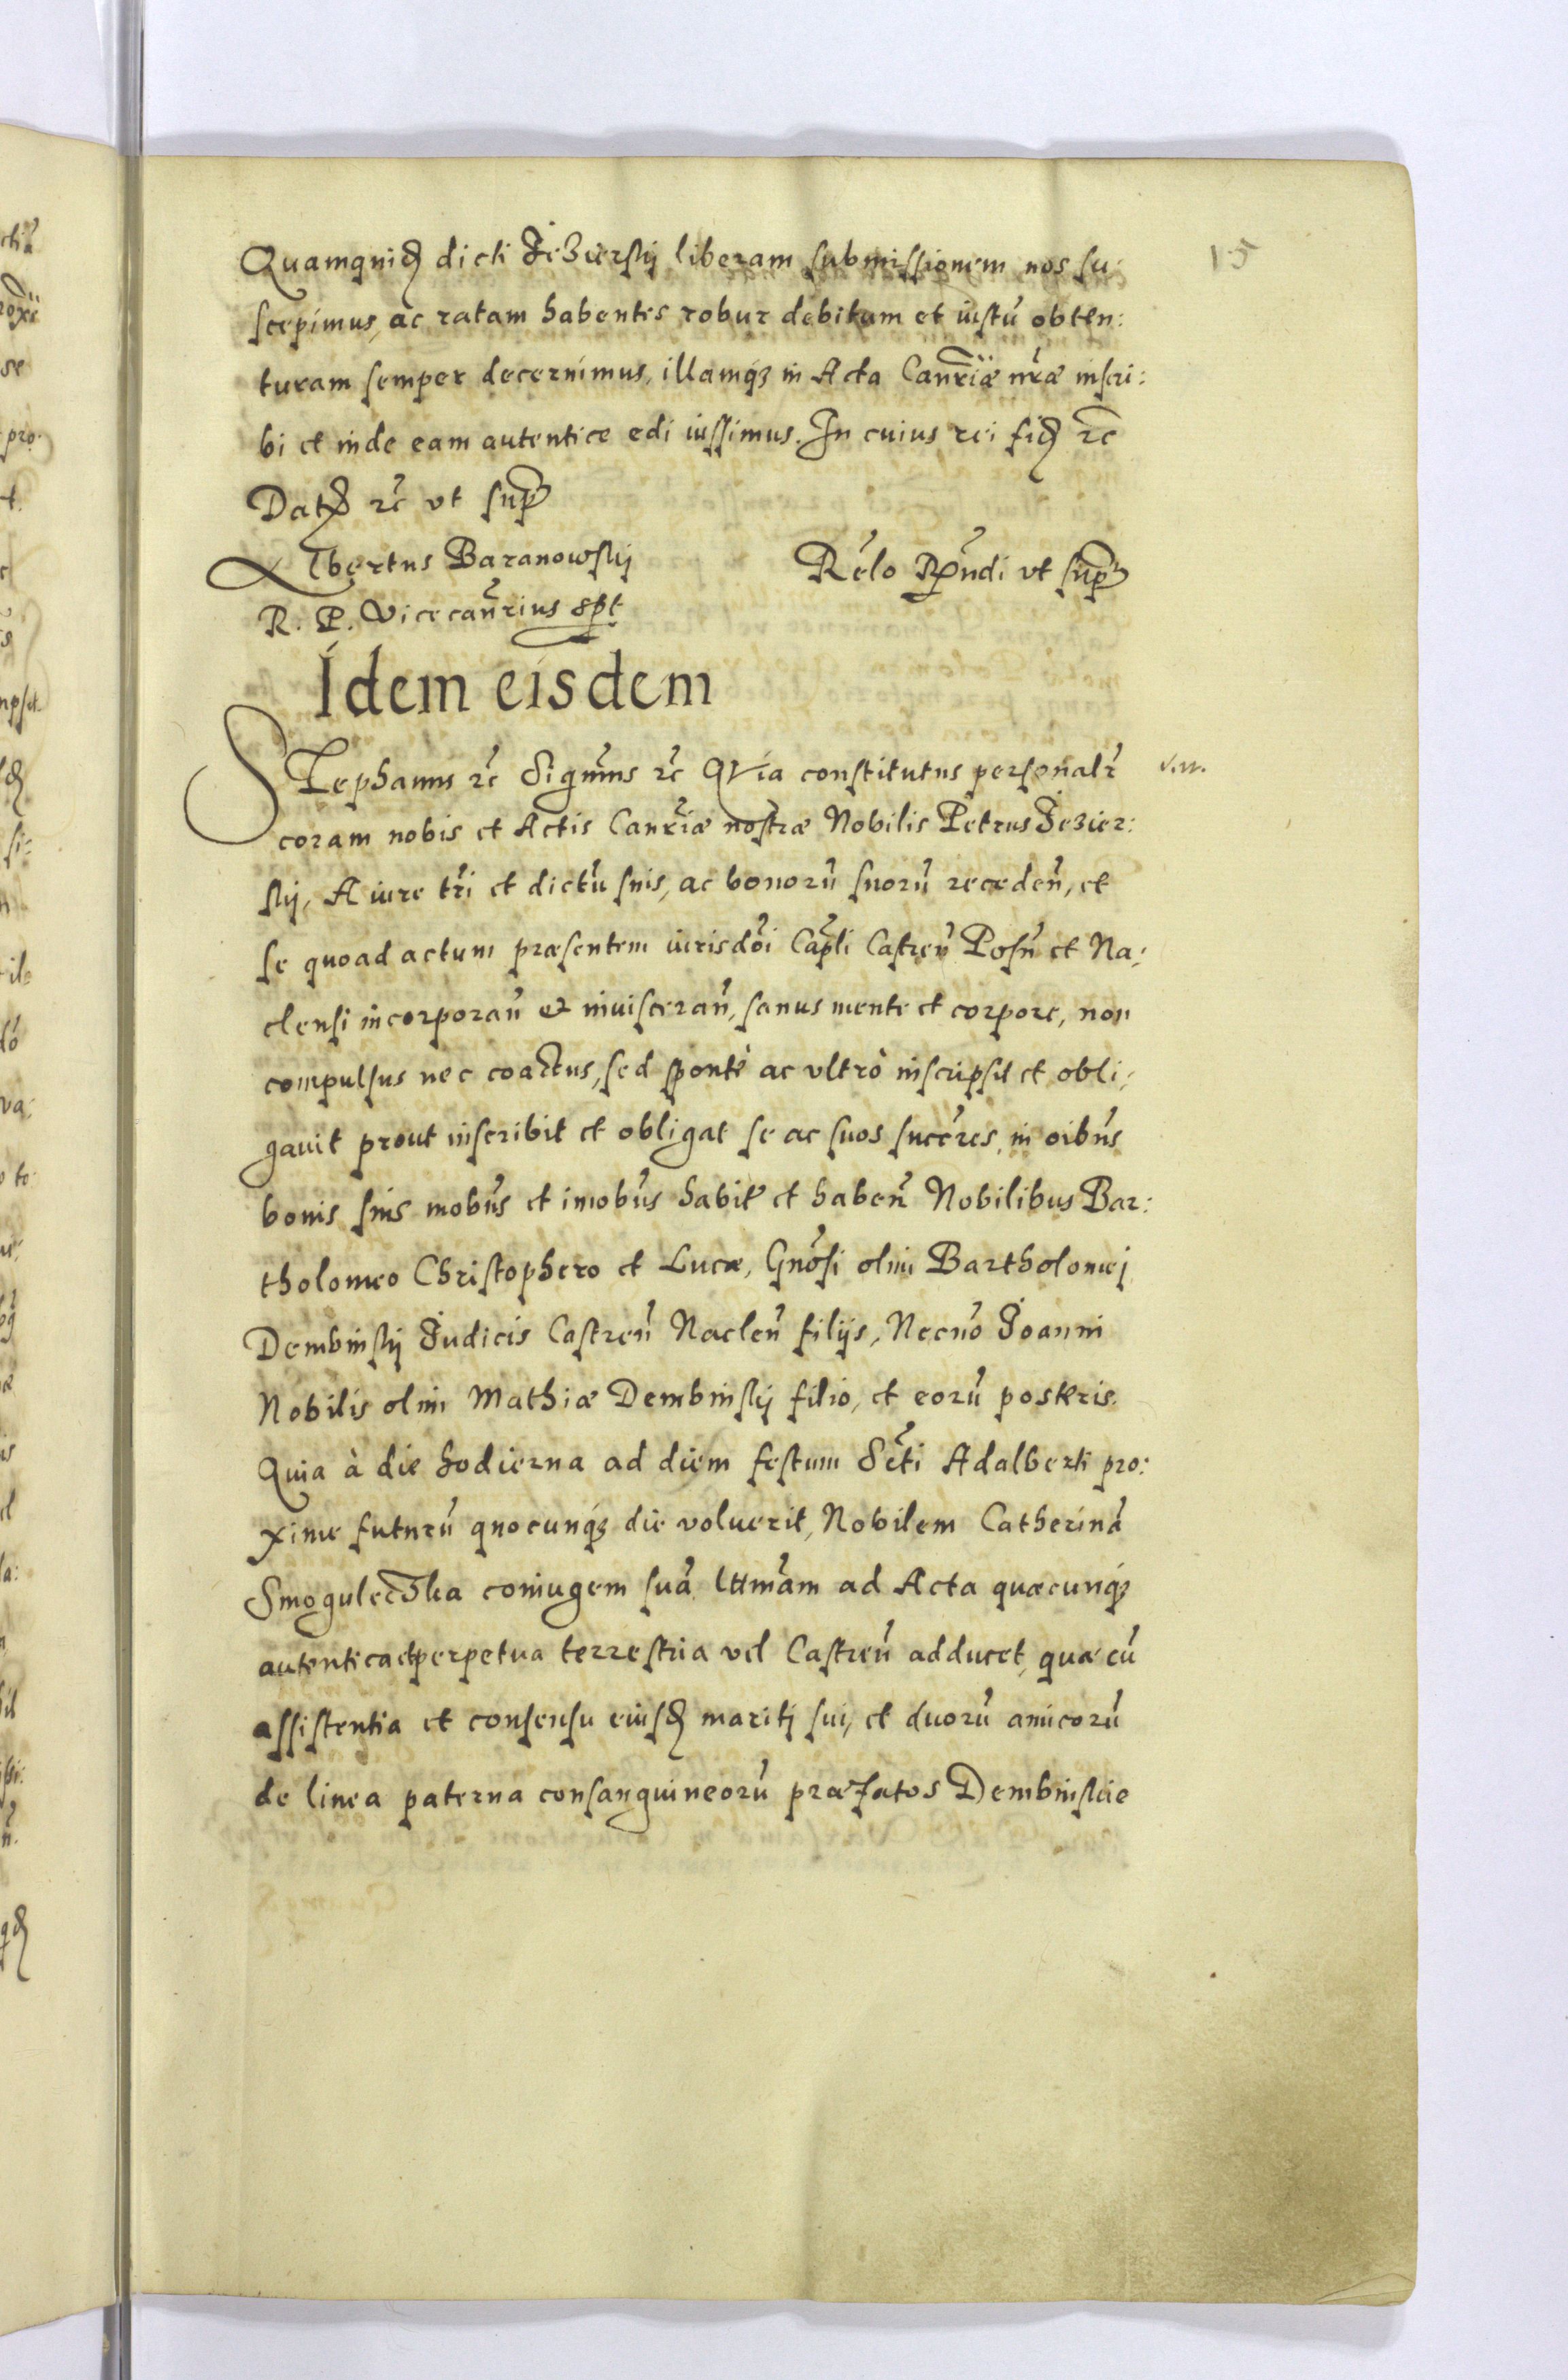 15
Quamquid dicti Jezierskij liberam submissionem nos su:
scepimus, ac ratam habentes robur debitum et iustũ obten:
turam semper decernimus, illamq3 in Acta Canr̃iæ nr̃æ inscri:
bi et inde eam autentice edi iussimus. In cuius rei fid rc̃
Dat rc̃ vt sup
Albertus Baranowskij
R. P. Vicecanr̃ius spt
Rẽlo Rñdi vt sup
Idem eisdem
STephanus rc̃ Signm̃us rc̃ QVia constitutus personalr̃ v.w.
coram nobis et Actis Canr̃iæ nostræ Nobilis Petrus Jezier:
skij, A iure trĩ et dictũ suis, ac bonorũ suorũ recedeñ, et
se quoad actum præsentem iurisdõi Cap̃li Castreñ Posñ et Na:
clensi incorporañ et inuisceran̄, sanus mente et corpore, non
compulsus nec coactus, sed sponte ac vltrò inscripsit et obli:
gauit prout inscribit et obligat se ac suos succr̃es, in oib̃us
bonis suis mob̃us et imob̃us habit et habeñ Nobilibus Bar:
tholomeo Christophero et Lucæ, Gnõsi olim Bartholomej
Dembinskij Judicis Castreñ Nacleñ filijs, Necnõ Joanni
Nobilis olim Mathiæ Dembinskij filio, et eorũ posteris.
Quia à die hodierna ad diem festum Sc̃ti Adalberti pro:
xime futurũ quocunq3 die voluerit, Nobilem Catherinã
Smogulecska coniugem suã lttm̃am ad Acta quæcunq3
autentica et perpetua terrestria vel Castreñ adducet, quæ cũ
assistentia et consensu eiusd maritj sui, et duorũ amicorũ
de linea paterna consanguineorũ præfatos Dembinscie